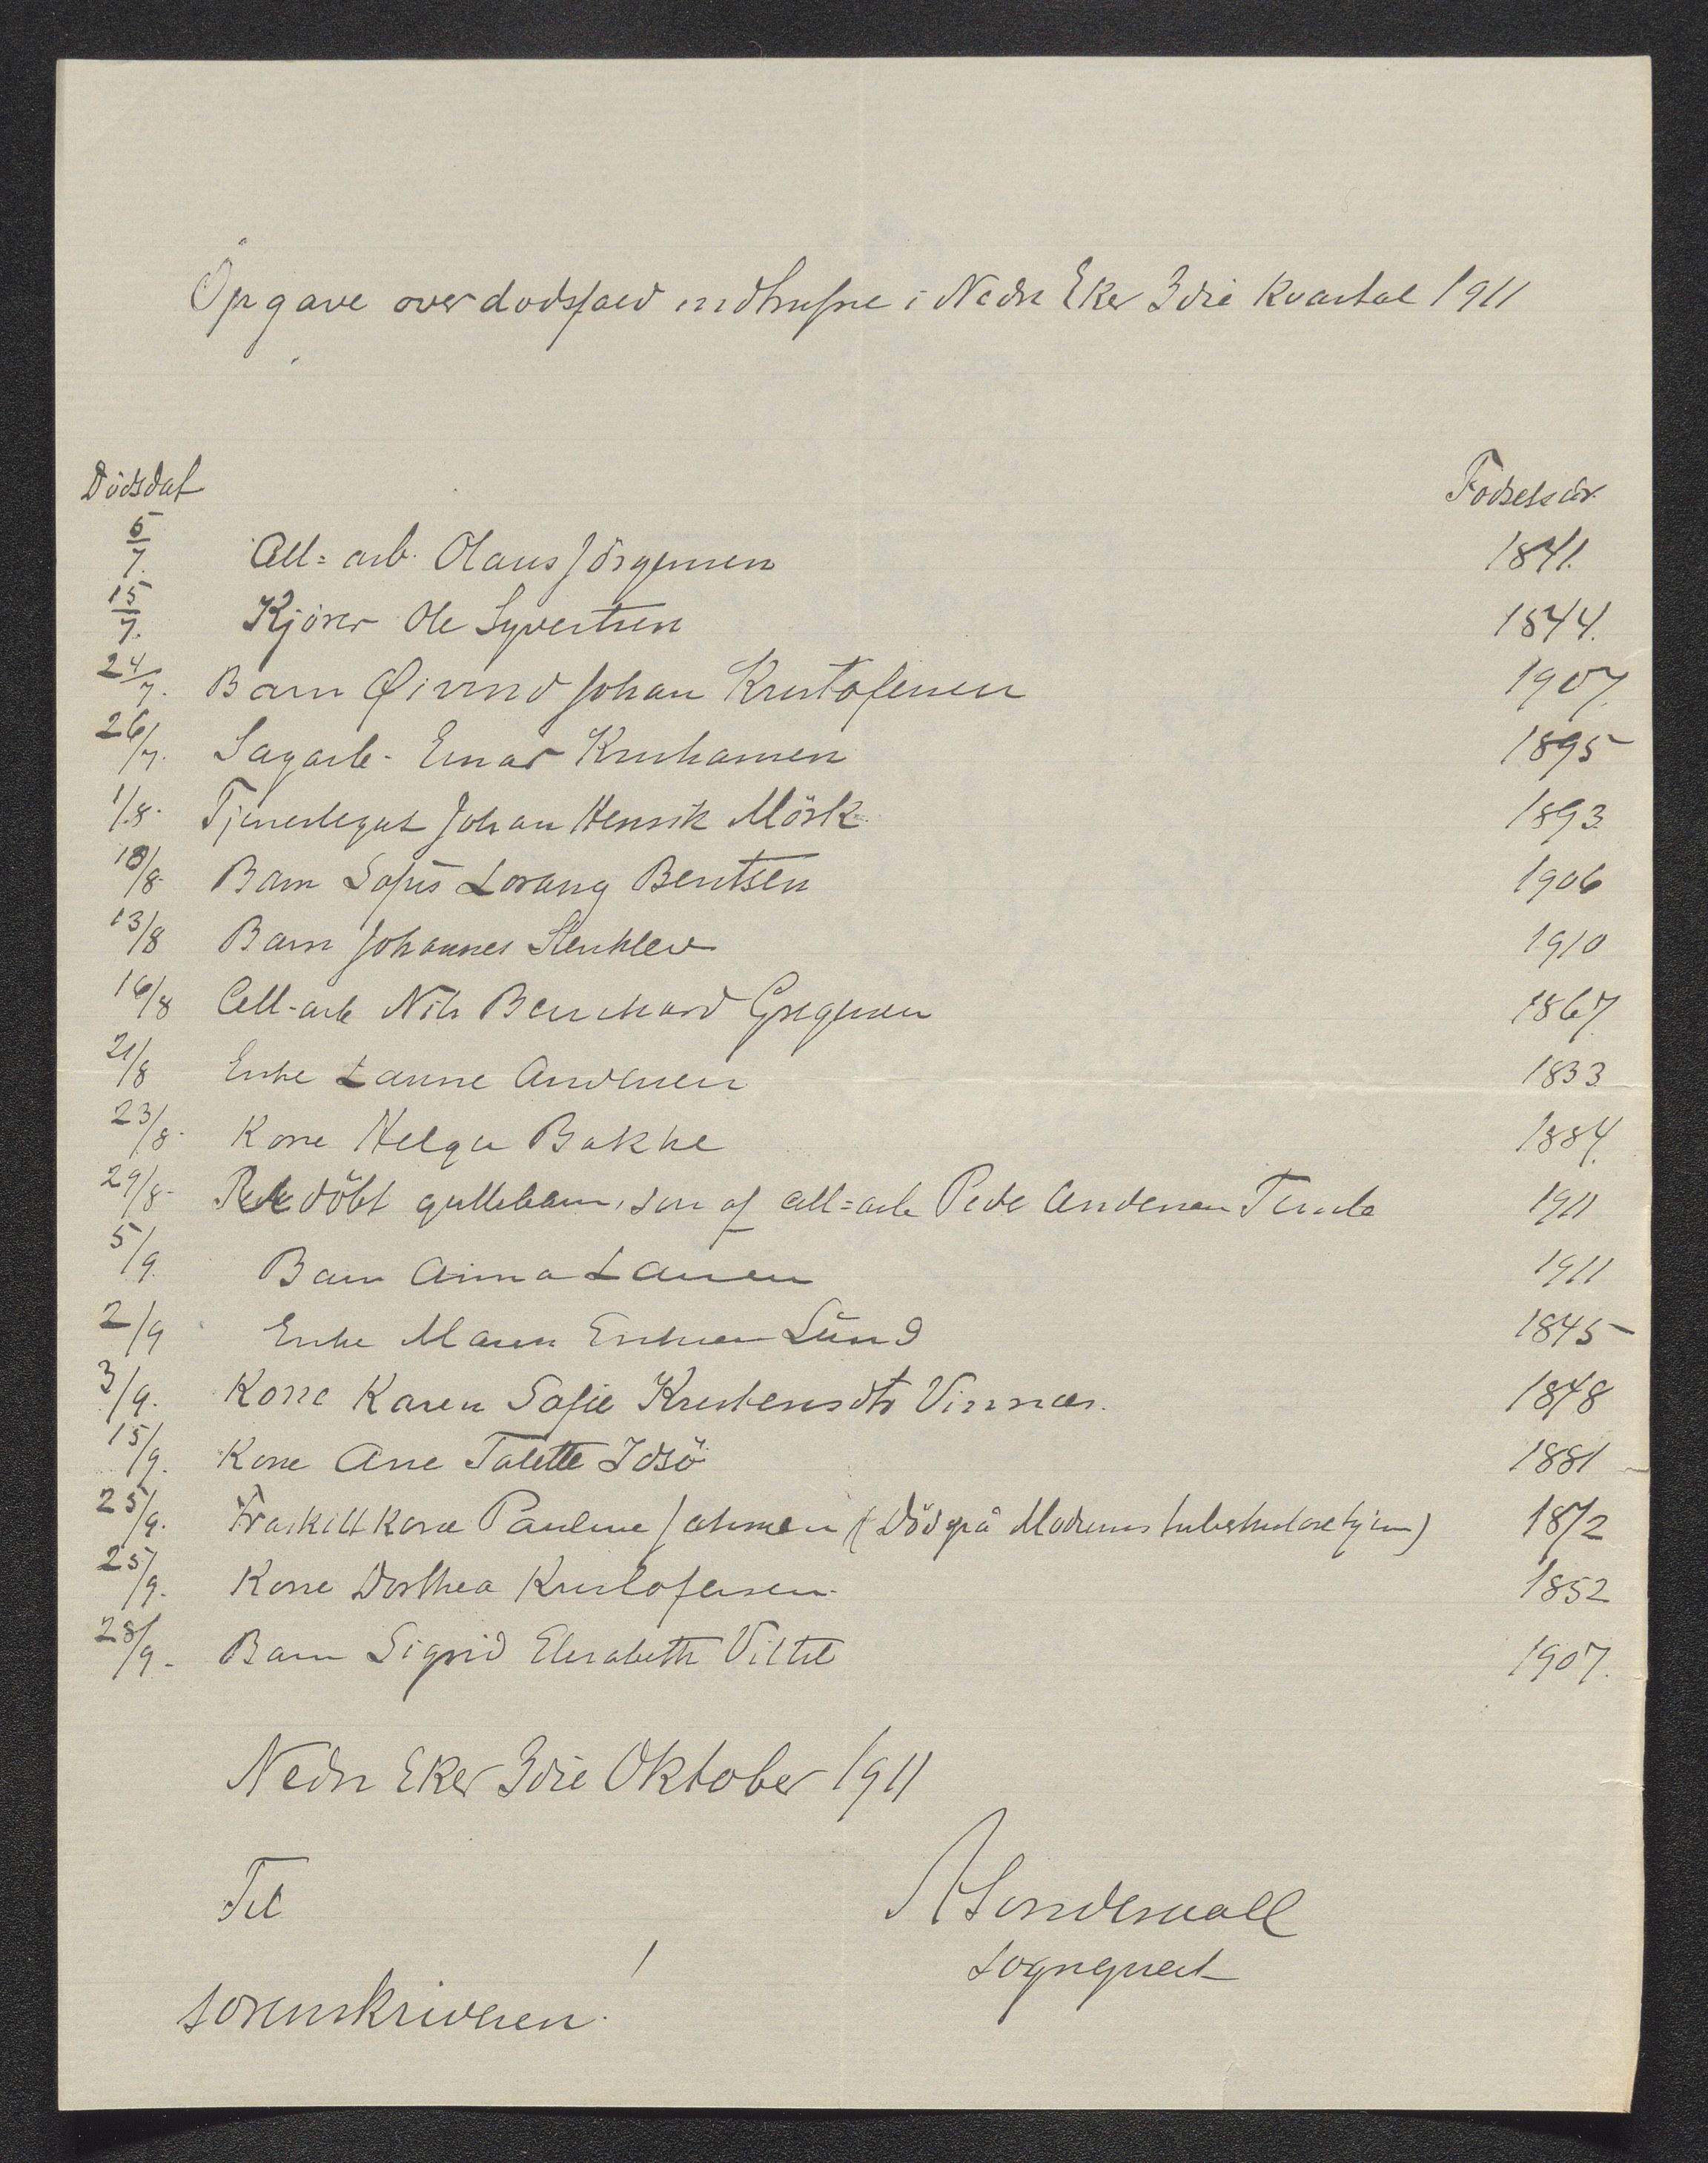 Opgave over dødsfald indtrufne i Nedre Eker 3die Kvartal 1911
Dødsdat Fødselsår
5/7. Cell= arb. Olaus Jörgensen 1841.
15/7. Kjörer Ole Syvertsen 1844.
24/7. Barn Øivind Johan Kristofersen 1907.
26/7. Sagarb- Einar Kristiansen 1895
1/8. Tjenestegut Johan Henrik Mörk 1893
10/8- Barn Sofus Lorang Bentsen 1906
13/8 Barn Johannes Stenklev 1910
16/8 Cell-arb Nils Bernhard Gregersen 1867.
21/8 Enke Laurine Andersen 1833
23/8. Kone Helga Bakke 1884.
29/8- döbt guttebarn, sön af cell=arb Peder Andersen 1911
5/9. Barn Anna Larsen 1911
2/9 Enke Maren Eriksen Lund 1845
3/9. Kone Karen Sofie Kristensdtr Vinnæs. 1848
15/9. Kone Ane Talette Idsö 1881
25/9. Fraskilt kone Pauline Johnsen (Död på Modums tuberkulosehjem) 1872
25/9. Kone Dorthea Kristofersen. 1852
28/9- Barn Sigrid Elisabeth Vittil 1907.
Nedre Eker 3die Oktober 1911
Til
sogneprest
sorenskriveren.